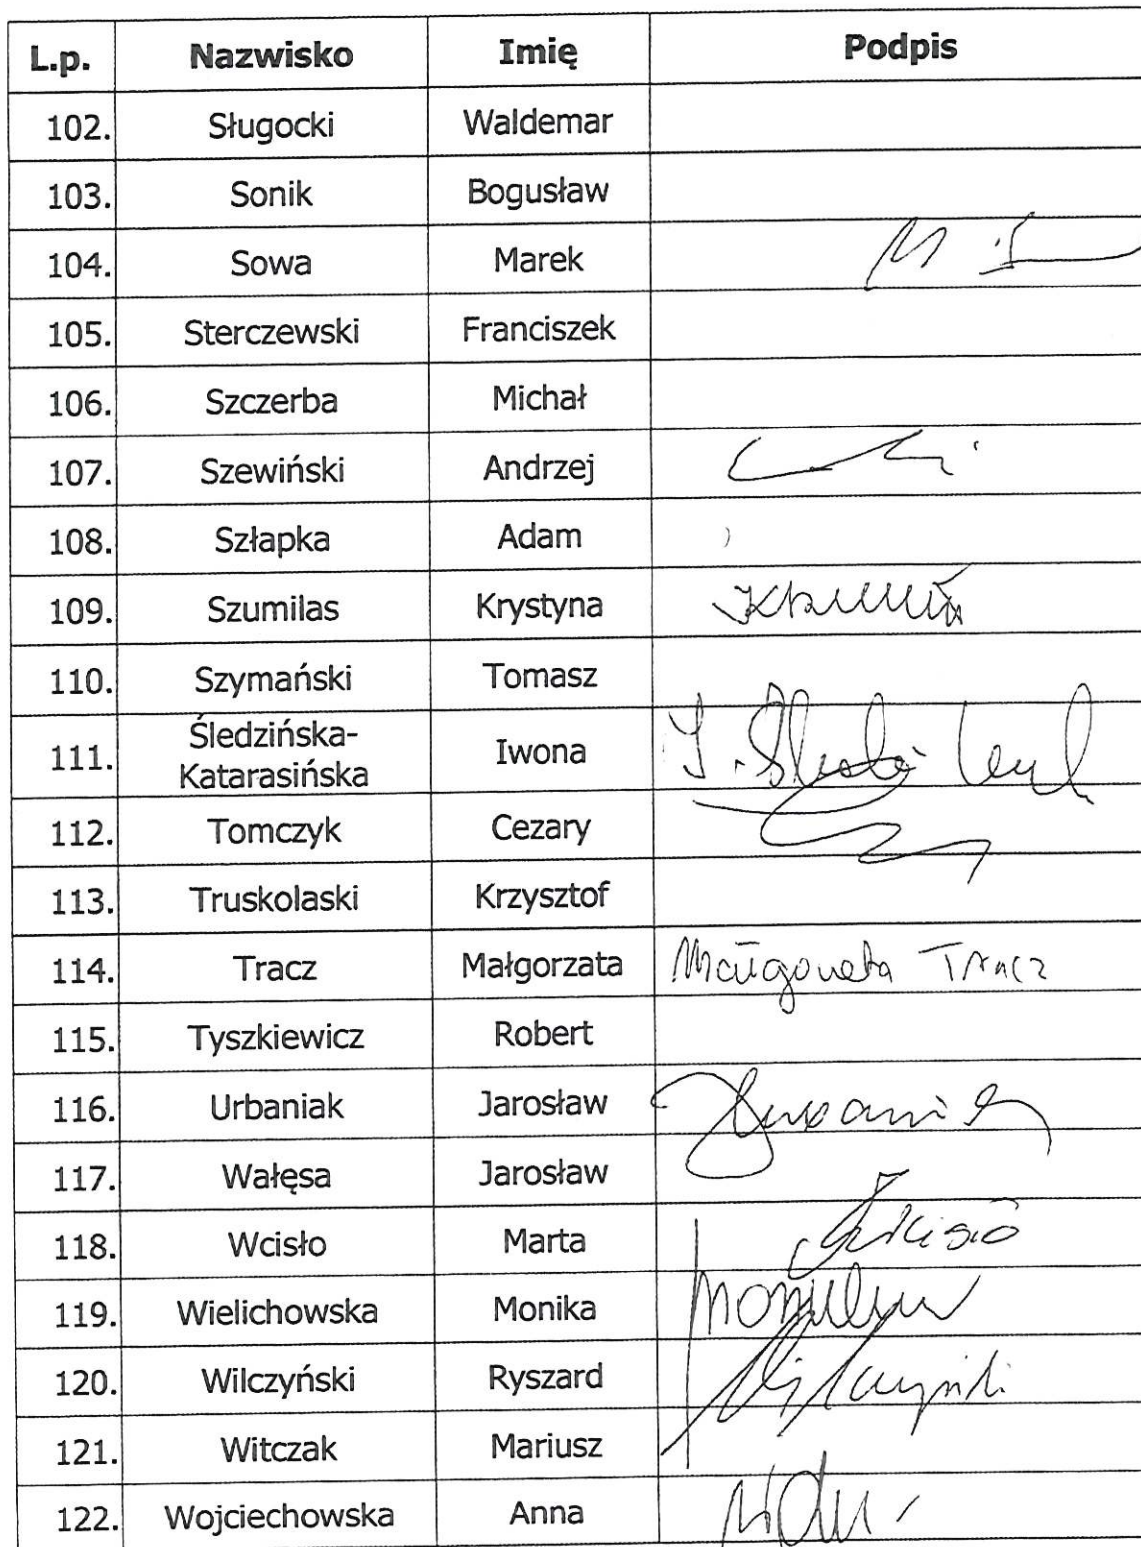 L.p. Nazwisko Imię Podpis
102. Sługocki Waldemar
103. Sonik Bogusław
104. Sowa Marek
105. Sterczewski Franciszek
106. Szczerba Michał
107. Szewiński Andrzej
108. Szłapka Adam
109. Szumilas Krystyna
110. Szymański Tomasz
111. Śledzińska-
Katarasińska Iwona
112. Tomczyk Cezary
113. Truskolaski Krzysztof
114. Tracz Małgorzata Małgorzata Tracz
115. Tyszkiewicz Robert
116. Urbaniak Jarosław
117. Wałęsa Jarosław
118. Wcisło Marta
119. Wielichowska Monika
120. Wilczyński Ryszard
121. Witczak Mariusz
122. Wojciechowska Anna